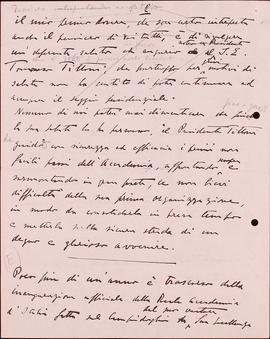 2
il mio primo dovere, da son certo interpretare
anche il pensiero di voi tutti, è di rivolgere
un deferente saluto ed augurio a S. E.
Tommaso Tittoni, che purtroppo per motivi di
salute non ha sentito di poter continuare ad
occupare il seggio presidenziale.
Nessuno di noi potrà mai dimenticare che sotto
la sua la Presidente Tittoni
guidò con sicurezza ed efficacia i primi non
facili passi dell'Accademia, apportando
sormontando in gran parte, le non lievi
difficoltà della sua prima organizzazione,
in modo da consolidarla in breve tempo
e metterla sulla sicura strada di un
degno e glorioso avvenire.
E
Poco più di un anno è trascorso dalla
inaugurazione ufficiale della Reale Accademia
d'Italia fatta sul Campidoglio